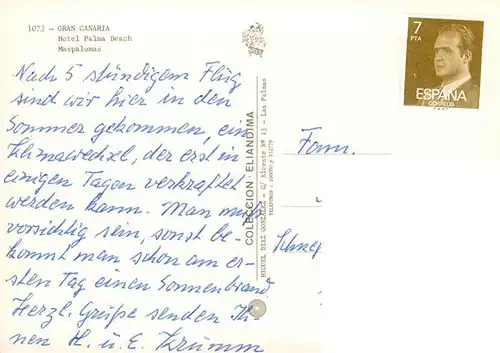 1073 - GRAN CANARIA
Hotel Palma Beach
Maspalomas
Nach 5 stündigem Flug
sind wir hier in den
Sommer gekommen, ein
Klimawechsel, der erst in
einigen Tagen verkraftet
werden kann. Man muß
vorsichtig sein, sonst be-
kommt man schon am er-
sten Tag einen Sonnenbrand
Herzl. Grüße senden Ih-
nen H. u. E. Krumm
COLECCION - ELIANDIMA
MIGUEL DIAZ GONZALEZ - C/ Alicante Nº 13 - Las Palmas
7
PTA
ESPAÑA
CORREOS
Fam.